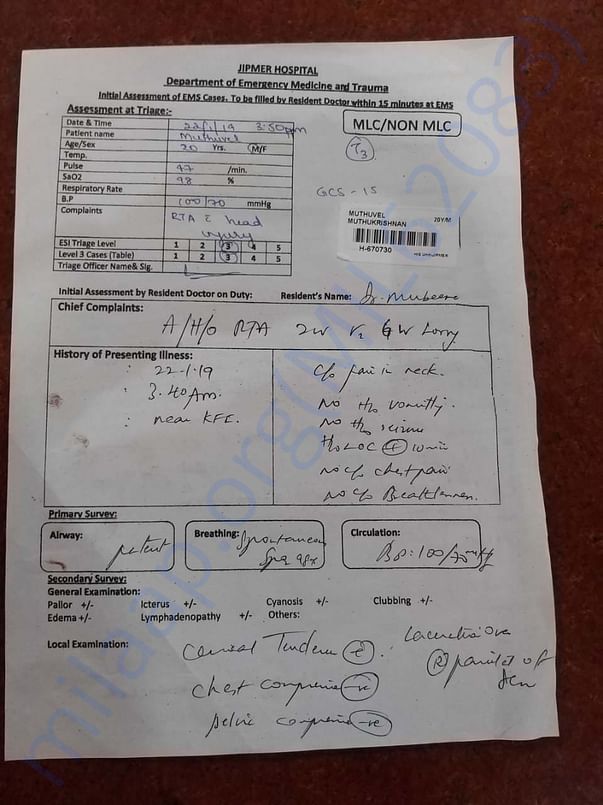 JIPMER HOSPITAL
Department of Emergency Medicine and Trauma
Initial Assessment of EMS Cases. To be filled by Resident Doctor within 15 minutes at EMS
Assessment at Triage:-
MLC/NON MLC
Date & Time 22/1/19 3:50pm
Patient name Muthuvel
Age/Sex 20 Yrs. M/F
Temp.
Pulse 97 /min.
SaO2 98 %
Respiratory Rate
B.P 100/70 mmHg
Complaints RTA c head
injury
ESI Triage Level 1 2 3 4 5
Level 3 Cases (Table) 1 2 3 4 5
Triage Officer Name& Sig.
T3
GCS - 15
MUTHUVEL 20Y/M
MUTHUKRISHNAN
H-670730
Initial Assessment by Resident Doctor on Duty: Resident's Name: Dr. Mubeena
Chief Complaints:
A/H/O RTA 2W Vs 4W Lorry
History of Presenting Illness:
: 22-1-19
: 3.40Am.
: near KFC.
c/o pain in neck.
No H/o vomitting.
No H/o seizure
H/o LOC + 10 min
No c/o chest pain
No c/o Breathlessness.
Primary Survey:
Airway: patent
Breathing: Spontaneous
SpO2 98%
Circulation:
BP: 100/70 mmHg
Secondary Survey:
General Examination:
Pallor +/- Icterus +/- Cyanosis +/- Clubbing +/-
Edema +/- Lymphadenopathy +/- Others:
Local Examination:
chest compression -ve
pelvic compression -ve
Laceration over
R parietal
milaap.org(MIL620833)